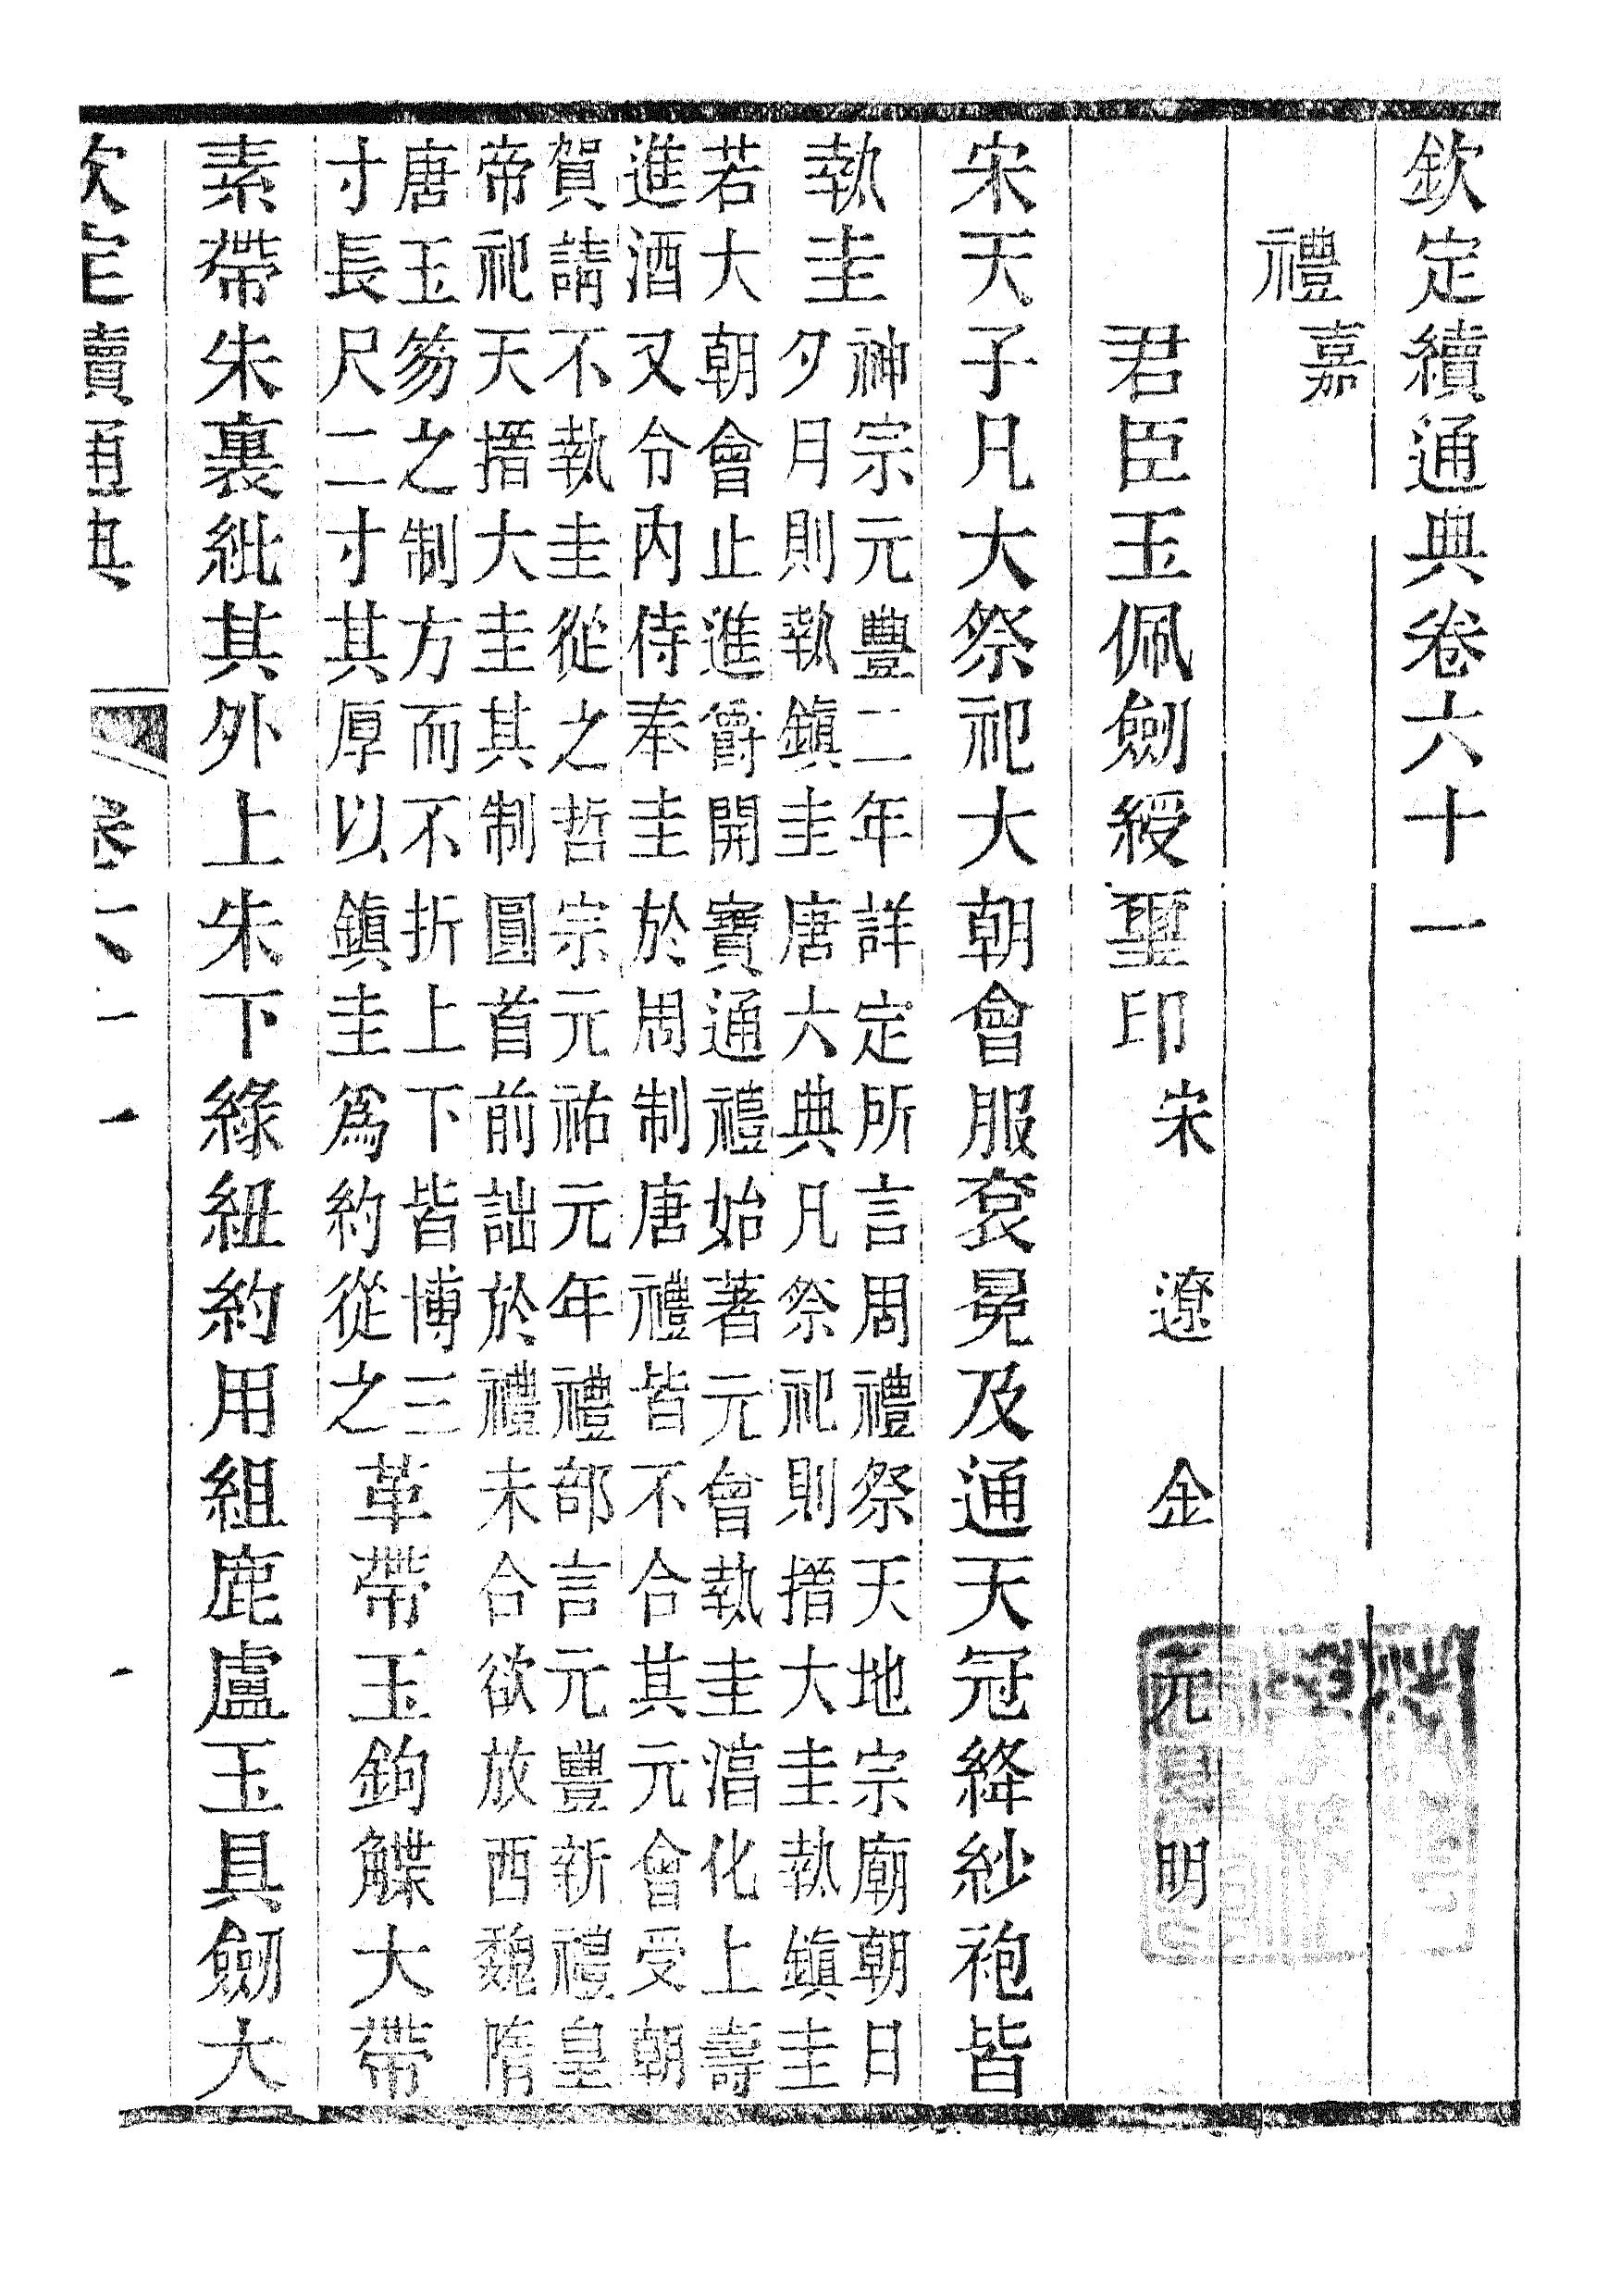 欽定續通典卷六十一
禮嘉
君臣玉佩劍綬璽印 宋 遼 金 元 明
宋天子凡大祭祀大朝會服袞冕及通天冠絳紗袍皆
執圭
神宗元豐二年詳定所言周禮祭天地宗廟朝日
夕月則執鎮圭唐六典凡祭祀則搢大圭執鎮圭
若大朝會止進爵開寶通禮始著元會執圭湻化上壽
進酒又令内侍奉圭於周制唐禮皆不合其元會受朝
賀請不執圭從之哲宗元祐元年禮部言元豐新禮皇
帝祀天搢大圭其制圓首前詘於禮未合欲放西魏隋
唐玉笏之制方而不折上下皆博三
寸長尺二寸其厚以鎮圭爲約從之
革帶玉鉤䚢大帶
素帶朱裏紕其外上朱下綠紐約用組鹿盧玉具劍大